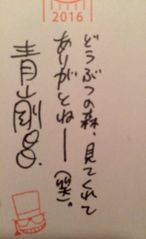 2016
どうぶつの森、見てくれて
ありがとねー(笑)。
青山剛昌